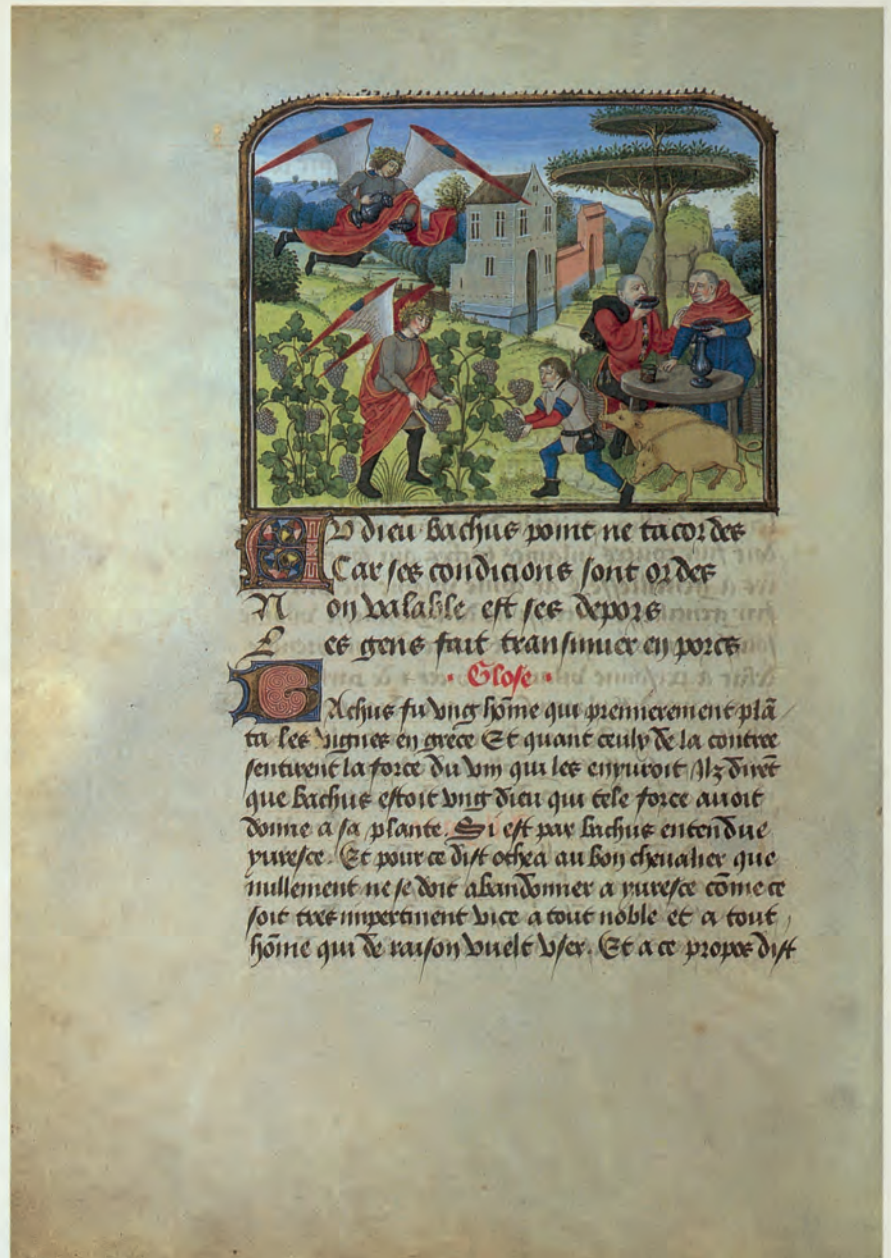 AU dieu bachus point ne tacordes
Car ses condicions sont ordes
Non valable est ses depors
Les gens fait transmuer en porcs
· Glose ·
BAchus fu vng hōme qui premierement plā
ta les vignes en grece Et quant ceulx de la contree
sentirent la force du vin qui les enyuroit Ilz dirēt
que bachus estoit vng dieu qui tele force auoit
donne a sa plante. Si est par bachus entendue
yuresce. Et pour ce dist othea au bon cheualier que
nullement ne se doit abandonner a yuresce cōme ce
soit tres impertinent vice a tout noble et a tout
hōme qui de raison vuelt vser. Et a ce propos dist